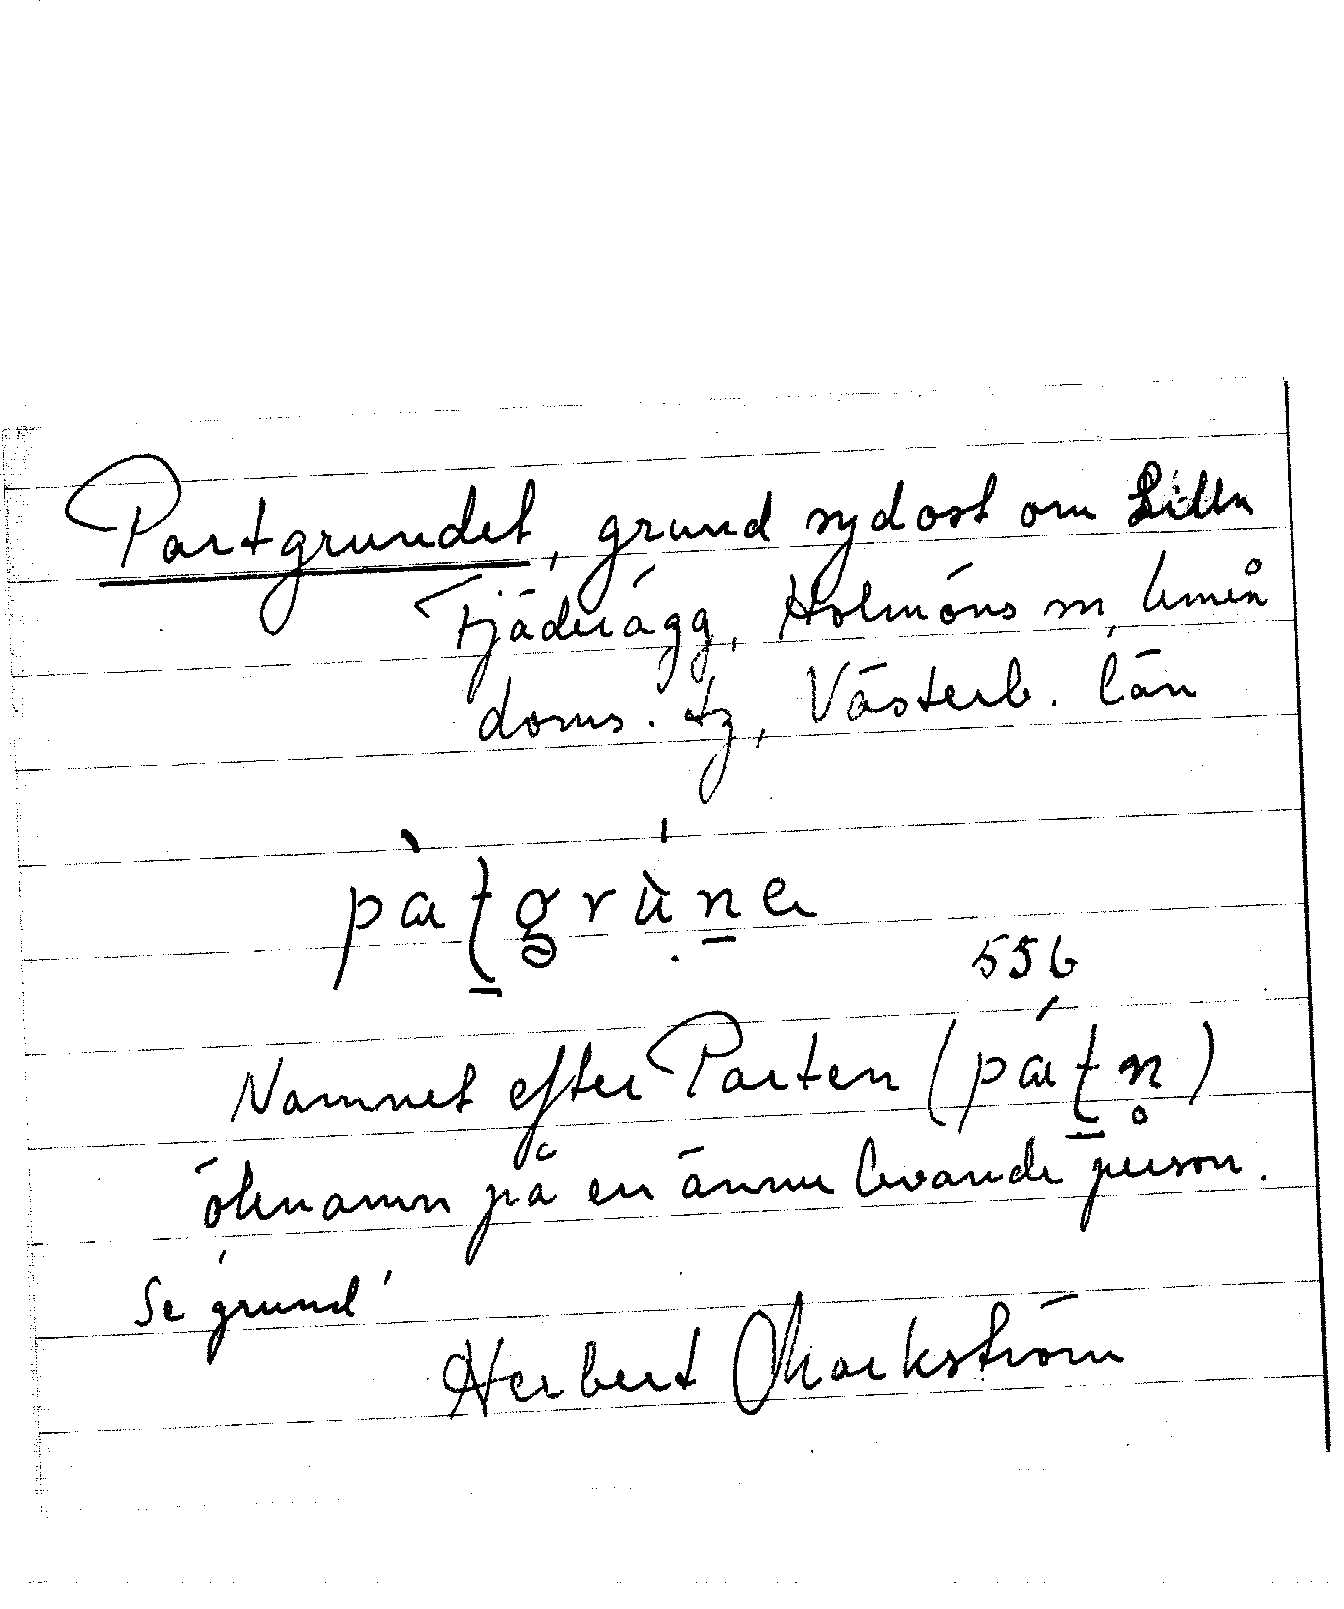 Partgrundet, grund sydost om Lilla
Fjäderägg, Holmöns sn, Umeå
doms. tg, Västerb. län
pàţgrùne
556
Namnet efter Parten (páţn̥)
öknamn på en ännu levande person.
Se 'grund'
Herbert Markström